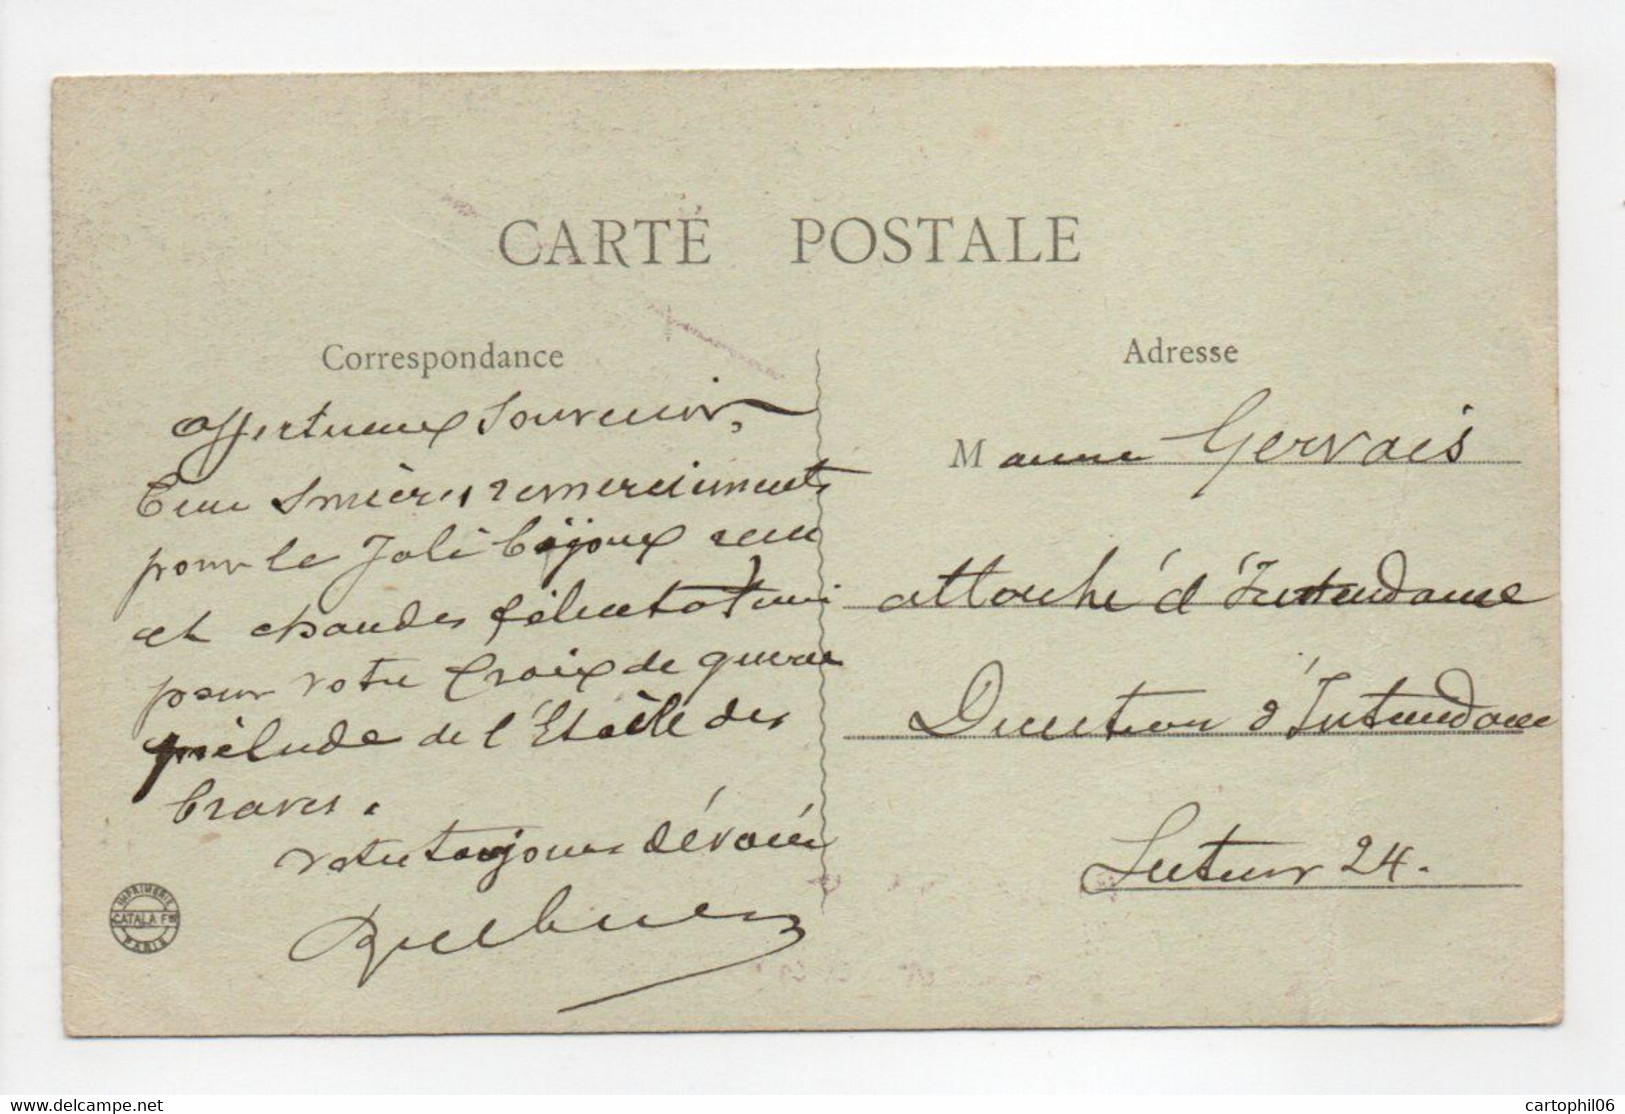 CARTE POSTALE
Correspondance
Adresse
affectueux Souvenir,
Sincères remerciements
pour le Joli bijoux
et chaudes félicitations
pour votre Croix de guerre
prélude de l'Etoile des
braves.
votre toujours dévoué
M Gervais
attaché d'Intendance
Direction d'Intendance
Secteur 24.
IMPRIMERIE
CATALA FRES
PARIS
cartophil06